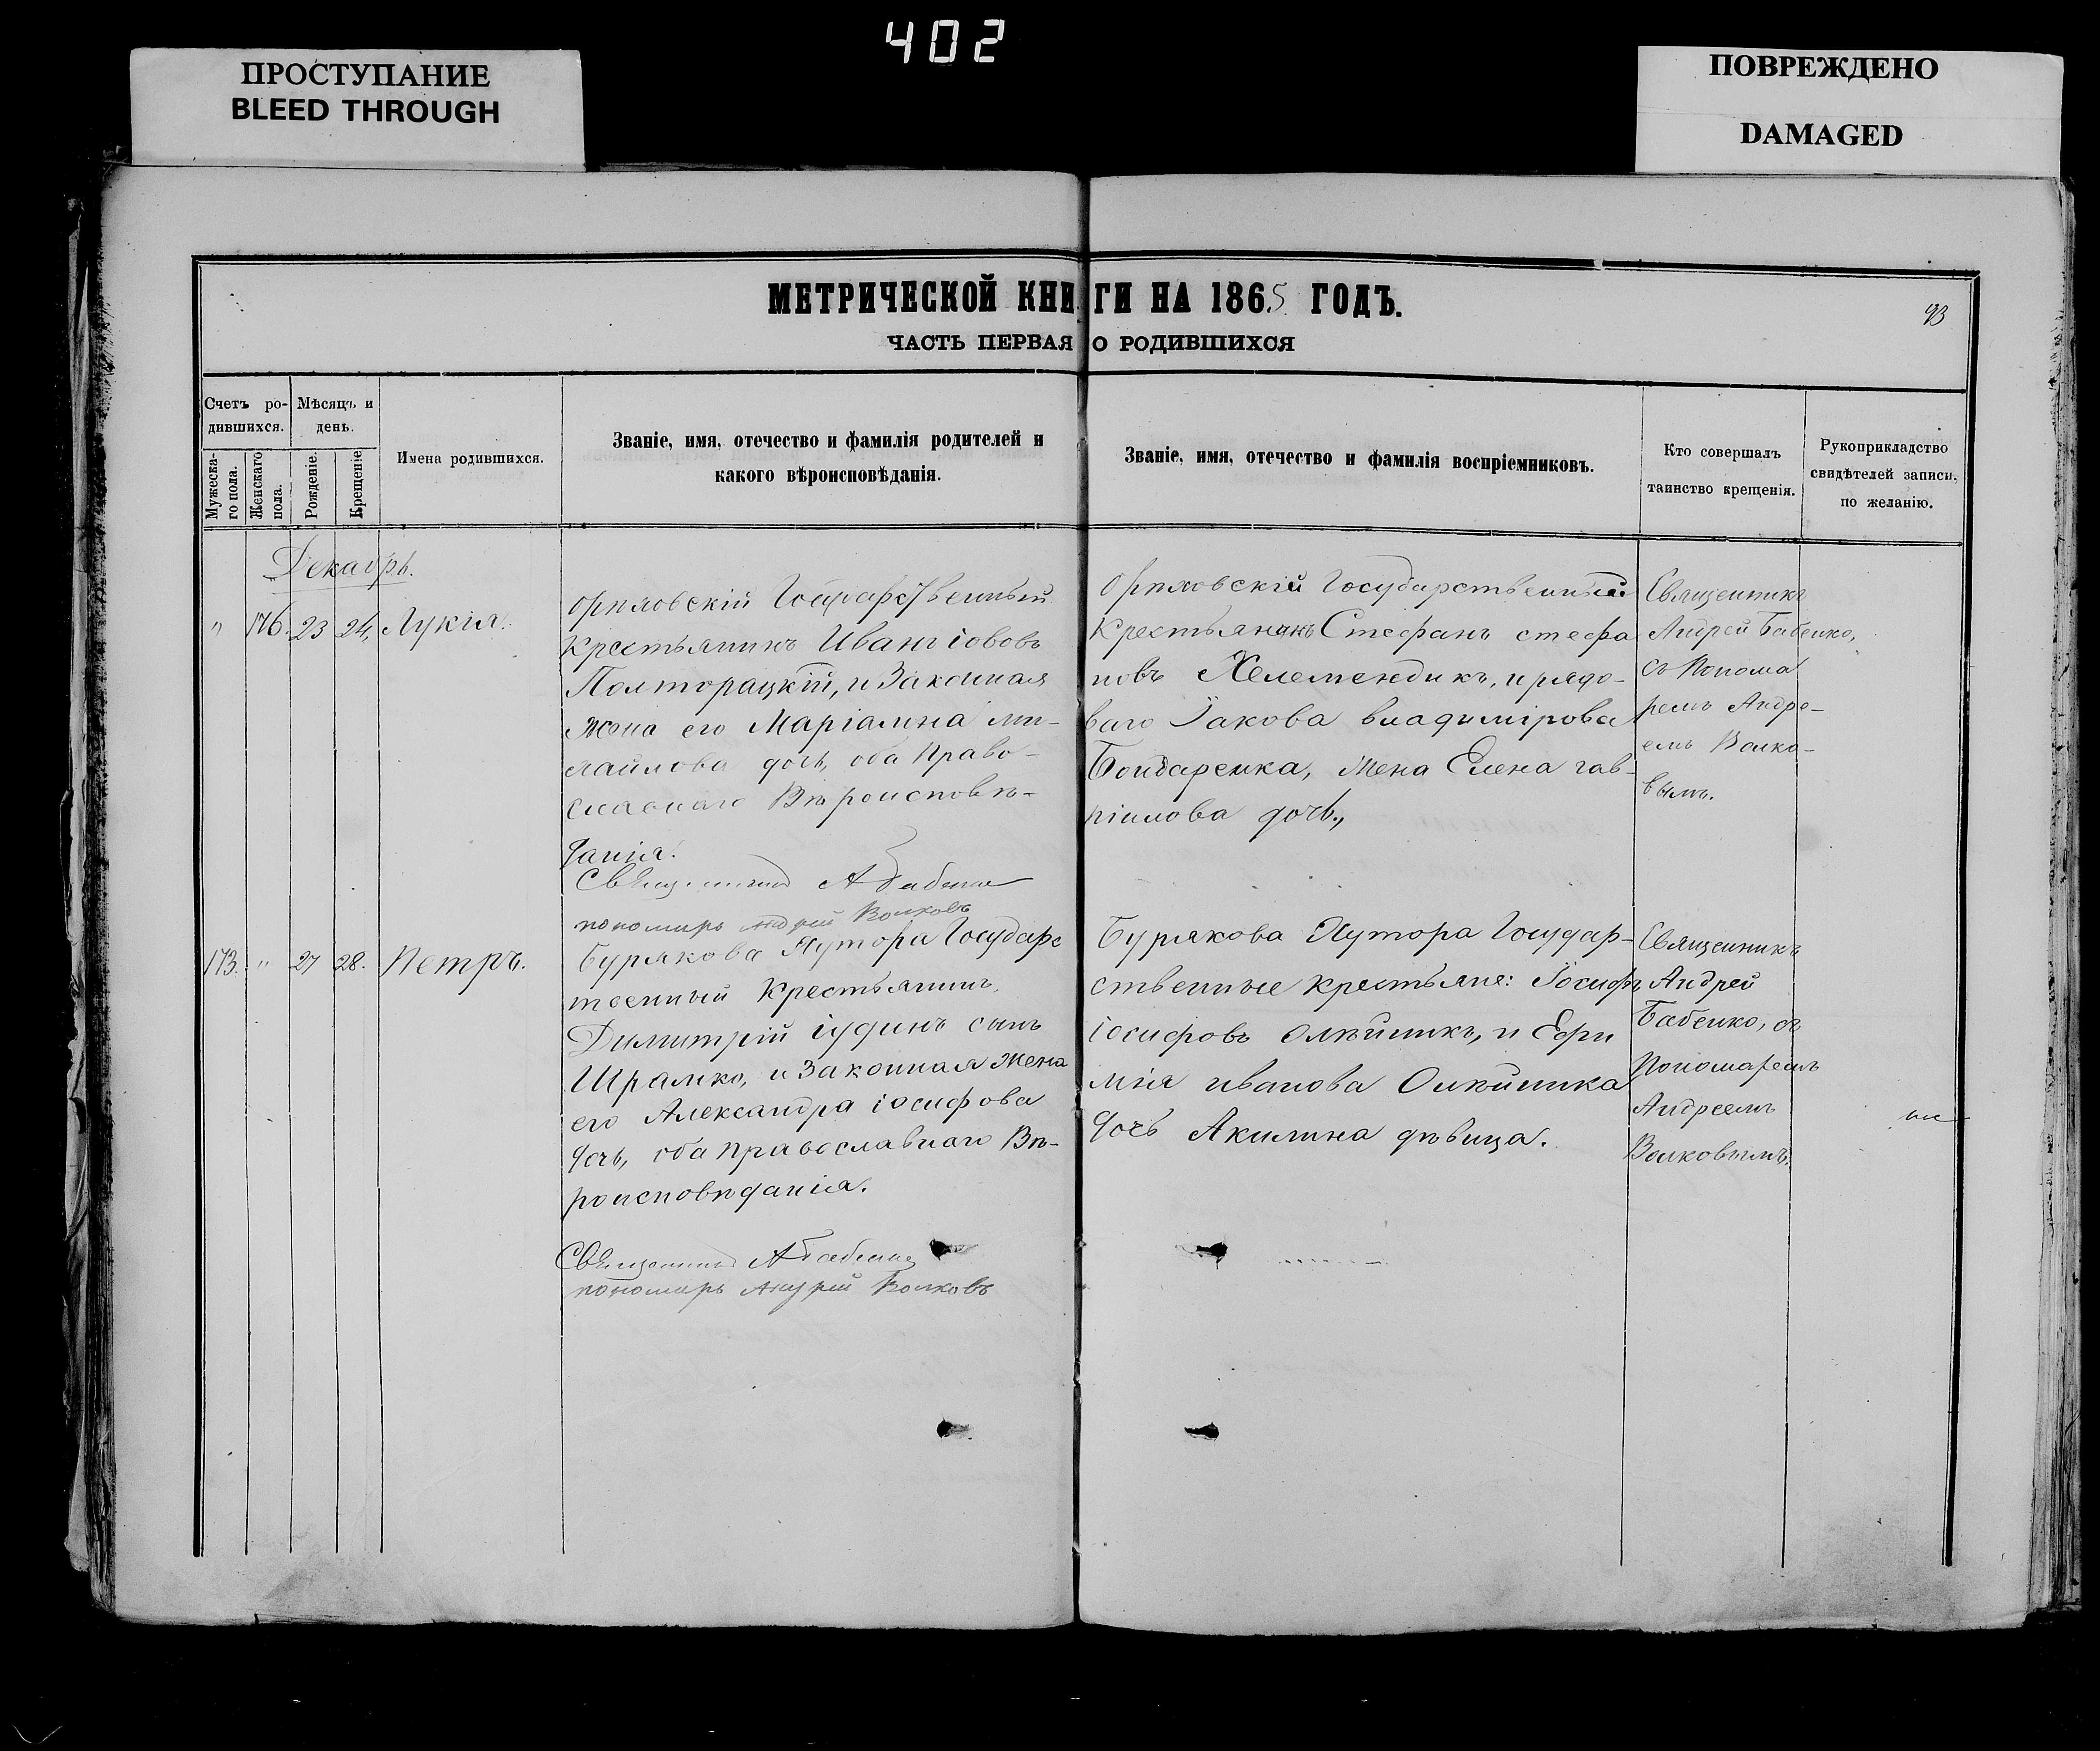 402
ПРОСТУПАНИЕ
BLEED THROUGH
ПОВРЕЖДЕНО
DAMAGED
МЕТРИЧЕСКОЙ КНИГИ НА 1865 ГОДЪ.
93
ЧАСТЬ ПЕРВАЯ О РОДИВШИХСЯ
Счетъ ро-
дившихся.
Мужеска-
го пола.
Женскаго
пола.
Мѣсяцъ и
день.
Рожденіе.
Крещеніе
Имена родившихся.
Званіе, имя, отечество и фамилія родителей и
какого вѣроисповѣданія.
Званіе, имя, отечество и фамилія воспріемниковъ.
Кто совершалъ
таинство крещенія.
Рукоприкладство
свидѣтелей записи,
по желанію.
Декабрь.
" 176. 23 24, Лукія.
Орѣховскій Государственный
Крестьянинъ Иванъ Іововъ
Полторацкій, и Законная
жена его Маріамна ми-
хайлова дочь, оба Право-
славнаго Вѣроисповѣ-
данія.
Священникъ А Бабенко
пономарь Андрей Волковъ
Орѣховскій Государственный
Крестьянинъ Стефанъ стефа
новъ Келемендикъ, и рядо-
ваго Іакова владимірова
Бондаренка, жена Елена гав-
ріилова дочь,
Священникъ
Андрей Бабенко,
съ Понома
ремъ Андре-
емъ Волко-
вымъ.
173. " 27 28. Петръ.
Бурякова Хутора Государс
твенный Крестьянинъ
Димитрій іудинъ сынъ
Шрамко, и Законная жена
его Александра іосифова
дочь, оба православнаго Вѣ-
роисповѣданія.
Священникъ А Бабенко
пономарь Андрей Волковъ
Бурякова Хутора Государ-
ственные крестьяне: Іосифъ
іосифовъ Олѣйникъ, и Ефи
мія иванова Олѣйника
дочь Акилина дѣвица.
Священникъ
Андрей
Бабенко, съ
Пономаремъ
Андреемъ
Волковымъ.